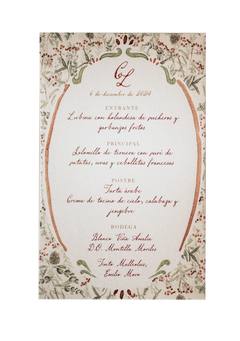 CL
6 de diciembre de 2024
ENTRANTE
Lubina con holandesa de pucheros y
garbanzos fritos
PRINCIPAL
Solomillo de ternera con puré de
patatas, uvas y cebollitas francesas
POSTRE
Tarta árabe
Crema de tocino de cielo, calabaza y
jengibre
BODEGA
Blanco Viña Amalia
D.O. Montilla Moriles
Tinto Malleolus,
Emilio Moro